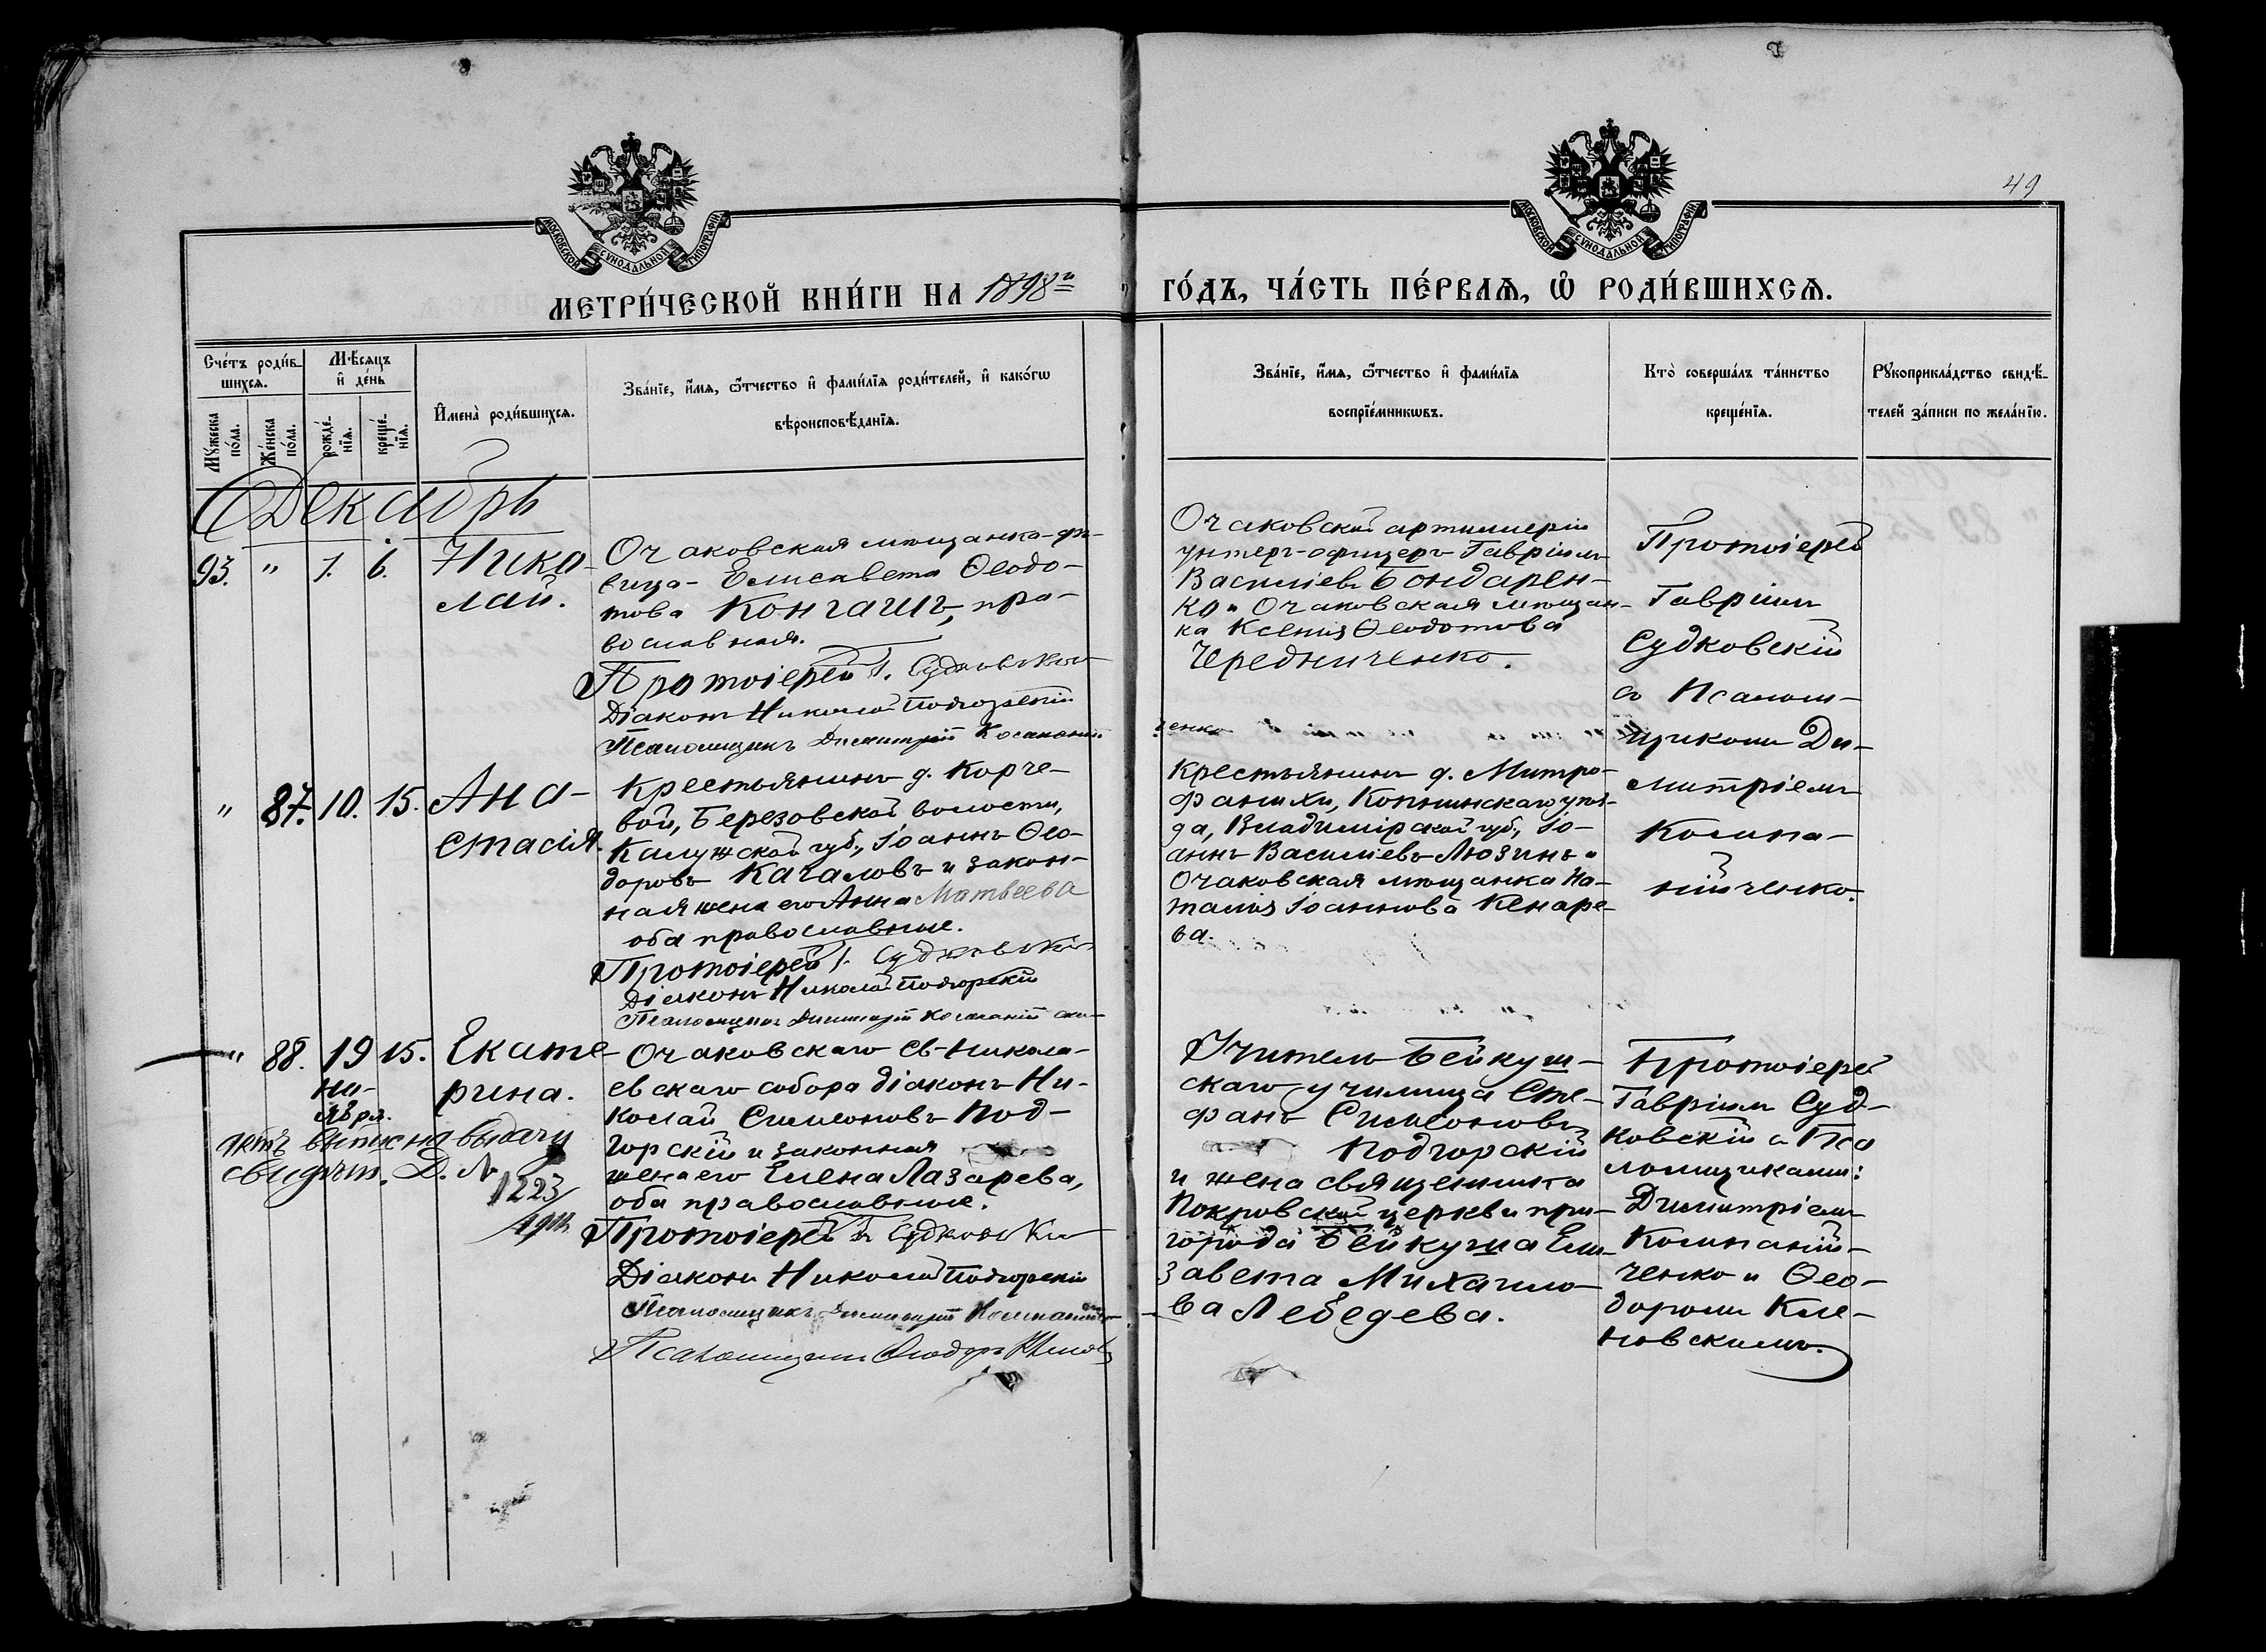 49
МОСКОВСКОЙ СУНОДАЛЬНОЙ ТИПОГРАФІИ
МОСКОВСКОЙ СУНОДАЛЬНОЙ ТИПОГРАФІИ
МЕТРИ́ЧЕСКОЙ КНИ́ГИ НА 1898й ГО́ДЪ, ЧА́СТЬ ПЕ́РВАѦ, Ѡ҆ РОДИ́ВШИХСѦ.
Сче́тъ роди́вшихсѧ.
Мꙋ́жеска по́ла.
Же́нска по́ла.
Мѣ́сѧцъ и҆ де́нь
рожде́нїѧ.
креще́нїѧ.
И҆мена̀ роди́вшихсѧ.
Зва́нїе, и҆́мѧ, ѻ҆́тчество и҆ фами́лїѧ роди́телей, и҆ како́гѡ
вѣроисповѣ́данїѧ.
Зва́нїе, и҆́мѧ, ѻ҆́тчество и҆ фами́лїѧ
воспрїе́мникѡвъ.
Кто̀ соверша́лъ та́инство
креще́нїѧ.
Рꙋкоприкла́дство свидѣ́-
телей за́писи по жела́нїю.
Декабрь
93. " 1. 6. Нико-
лай.
Очаковская мѣщанка-дѣ-
вица- Елисавета Ѳеодо-
това Конгашъ, пра-
вославная.
Протоіерей Г. Судковскій
Діаконъ Николай Подгорскій
Псаломщикъ Димитрій
Очаковской артиллеріи
унтеръ-офицеръ Гавріилъ
Василіевъ Бондарен-
ко и Очаковская мѣщан-
ка Ксенія Ѳеодотова
Чередниченко.
Протоіерей
Гавріилъ
Судковскій
съ Псалом-
щикомъ Ди-
митріемъ
Компа-
нійченко.
" 87. 10. 15. Ана-
стасія.
Крестьянинъ д. Корче-
вой, Березовской волости,
Калужской губ., Іоаннъ Ѳео-
доровъ Качаловъ и закон-
ная жена его Анна Матвеева
оба православные.
Протоіерей Г. Судковскій
Діаконъ Николай Подгорскій
Псаломщикъ Димитрій
Крестьянинъ д. Митро-
фанихи, уѣз-
да, Владимірской губ., Іо-
аннъ Василіевъ Люзинъ и
Очаковская мѣщанка На-
талія Іоаннова Кенаре-
ва.
" 88. 19 15. Екате-
но- рина.
ября.
актъ выписна выдачу
свидѣт. Д. №
1223/
1911
Очаковскаго Св-Никола-
евскаго собора діаконъ Ни-
колай Симеоновъ Под-
горскій и законная
жена его Елена Лазарева,
оба православные.
Протоіерей Г. Судковскій
Діаконъ Николай Подгорскій
Псаломщикъ Димитрій
Псаломщикъ Ѳеодоръ
Учитель Бейкуш-
скаго училища Сте-
фанъ Симеоновъ
Подгорскій
и жена священника
Покровской церкви при-
города Бейкуша Ели-
завета Михаило-
ва Лебедева.
Протоіерей
Гавріилъ Суд-
ковскій съ Пса
ломщиками:
Димитріемъ
Компаній-
ченко и Ѳео-
доромъ Кле-
новскимъ.